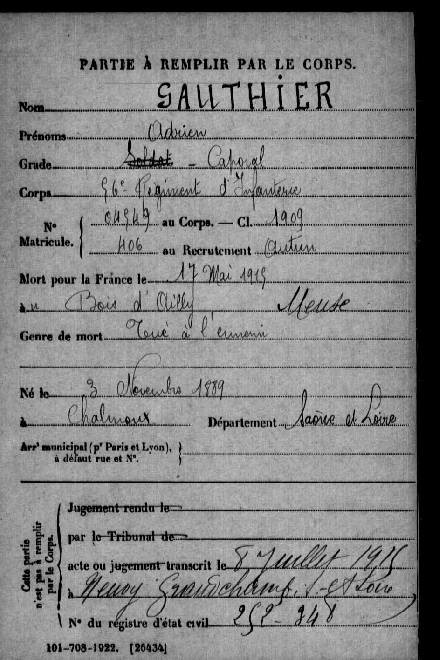 PARTIE À REMPLIR PAR LE CORPS.
Nom GAUTHIER
Prénoms Adrien
Grade Soldat - Caporal
Corps 56e Régiment d'Infanterie
N° Matricule. 04549 au Corps. — Cl. 1909
406 au Recrutement Autun
Mort pour la France le 17 Mai 1915
à u Bois d'Ailly Meuse
Genre de mort Tué à l'ennemi
Né le 3 Novembre 1889
à Chalmoux Département Saône et Loire
Arrt municipal (pr Paris et Lyon), à défaut rue et N°.
Cette partie n'est pas à remplir par le Corps.
Jugement rendu le
par le Tribunal de
acte ou jugement transcrit le 8 Juillet 1915
à Neuvy Grandchamp, S.-et Loire
N° du registre d'état civil
101-708-1922. [26434]